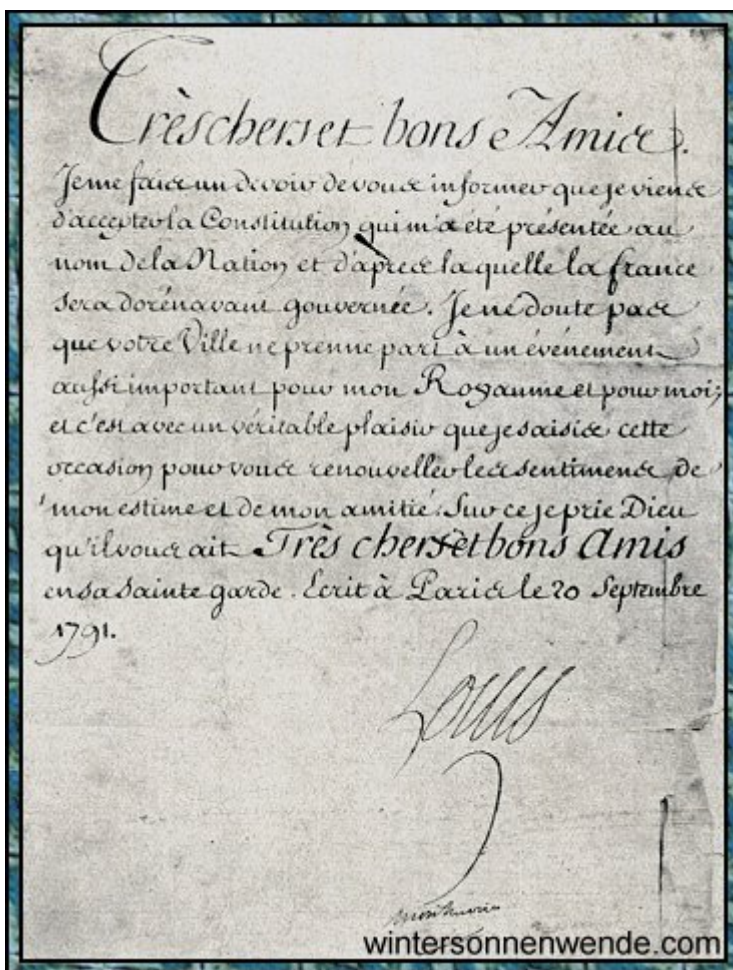 Très chers et bons Amis.
Je me fais un devoir de vous informer que je viens
d'accepter la Constitution qui m'a été présentée au
nom de la Nation et d'après la quelle la france
sera dorénavant gouvernée. Je ne doute pas
que votre Ville ne prenne part à un événement
aussi important pour mon Royaume et pour moi;
et c'est avec un véritable plaisir que je saisis cette
occasion pour vous renouveller les sentimens de
mon estime et de mon amitié. Sur ce je prie Dieu
qu'il vous ait Très chers et bons Amis
en sa sainte garde. Ecrit à Paris le 20 Septembre
1791.
Louis
wintersonnenwende.com